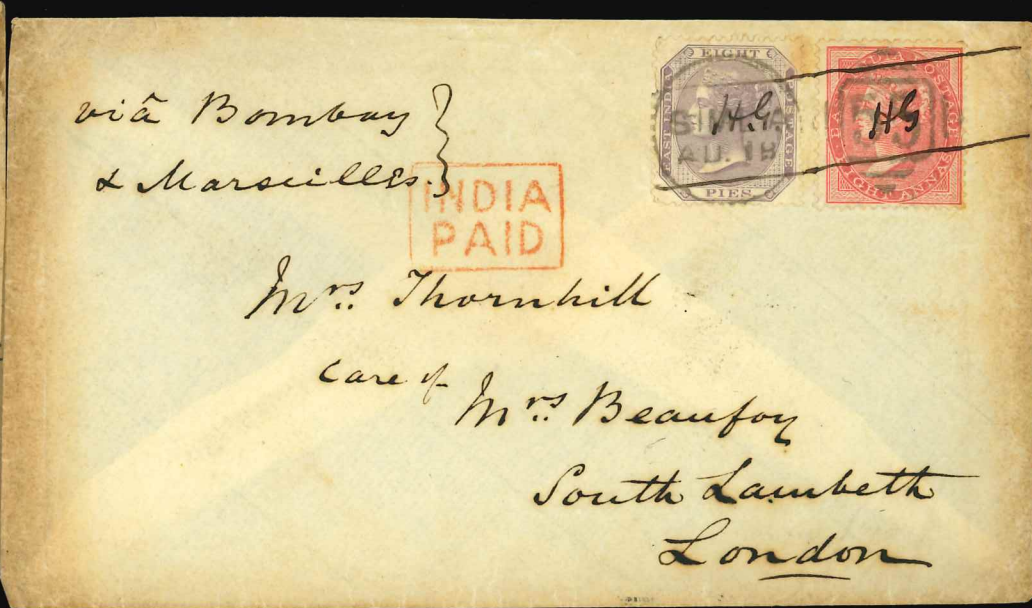 via Bombay
& Marseilles
INDIA
PAID
EIGHT
EAST INDIA
POSTAGE
PIES
H.G.
SIMLA
AU. 18
EAST INDIA POSTAGE
EIGHT ANNAS
HG
Mrs. Thornhill
Care of
Mrs. Beaufoy
South Lambeth
London